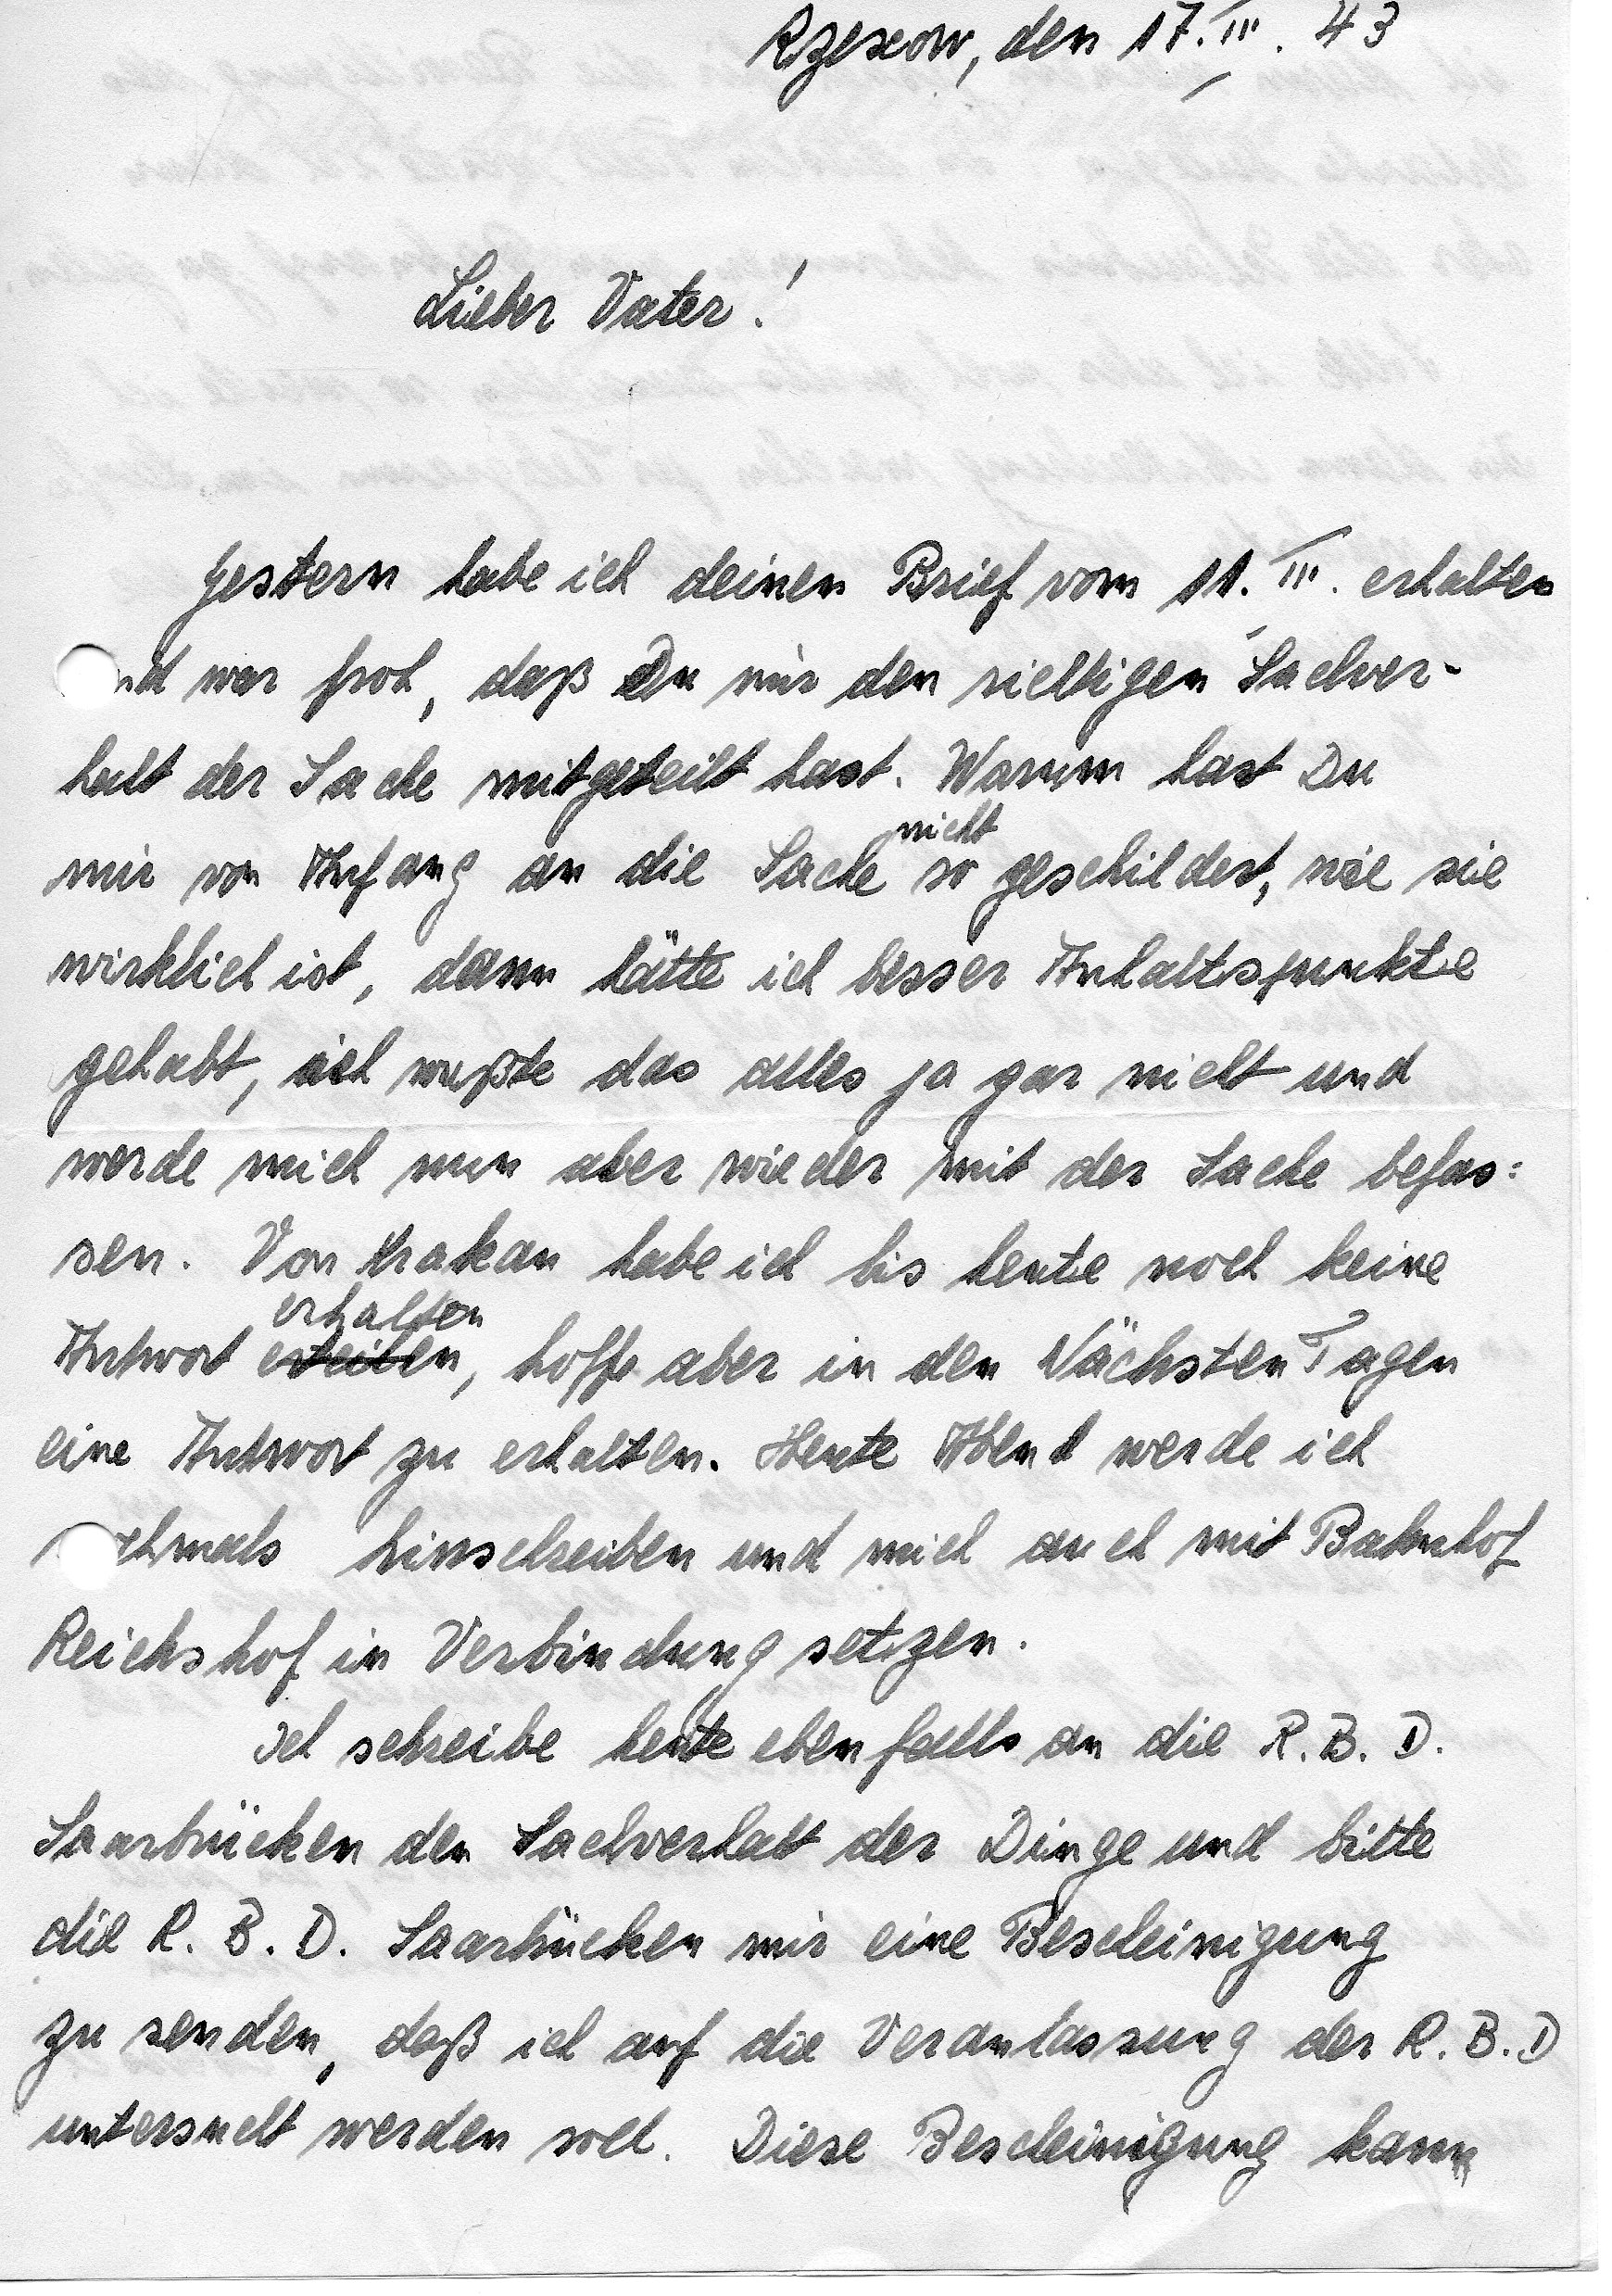 Rzeszow, den 17. III. 43
Lieber Vater!
Gestern habe ich deinen Brief vom 11. III. erhalten
und war froh, daß Du mir den richtigen Sachver-
halt der Sache mitgeteilt hast. Warum hast Du
nicht
mir von Anfang an die Sache so geschildert, wie sie
wirklich ist, dann hätte ich besser Anhaltspunkte
gehabt, ich wußte das alles ja gar nicht und
werde mich nun aber wieder mit der Sache befas:
sen. Von Krakau habe ich bis heute noch keine
erhalten
Antwort, hoffe aber in den Nächsten Tagen
eine Antwort zu erhalten. Heute Abend werde ich
nochmals hinschreiben und mich auch mit Bahnhof
Reichshof in Verbindung setzen.
Ich schreibe heute ebenfalls an die R. B. D.
Saarbrücken den Sachverhalt der Dinge und bitte
die R. B. D. Saarbrücken mir eine Bescheinigung
zu senden, daß ich auf die Veranlassung der R. B. D
untersucht werden soll. Diese Bescheinigung kann